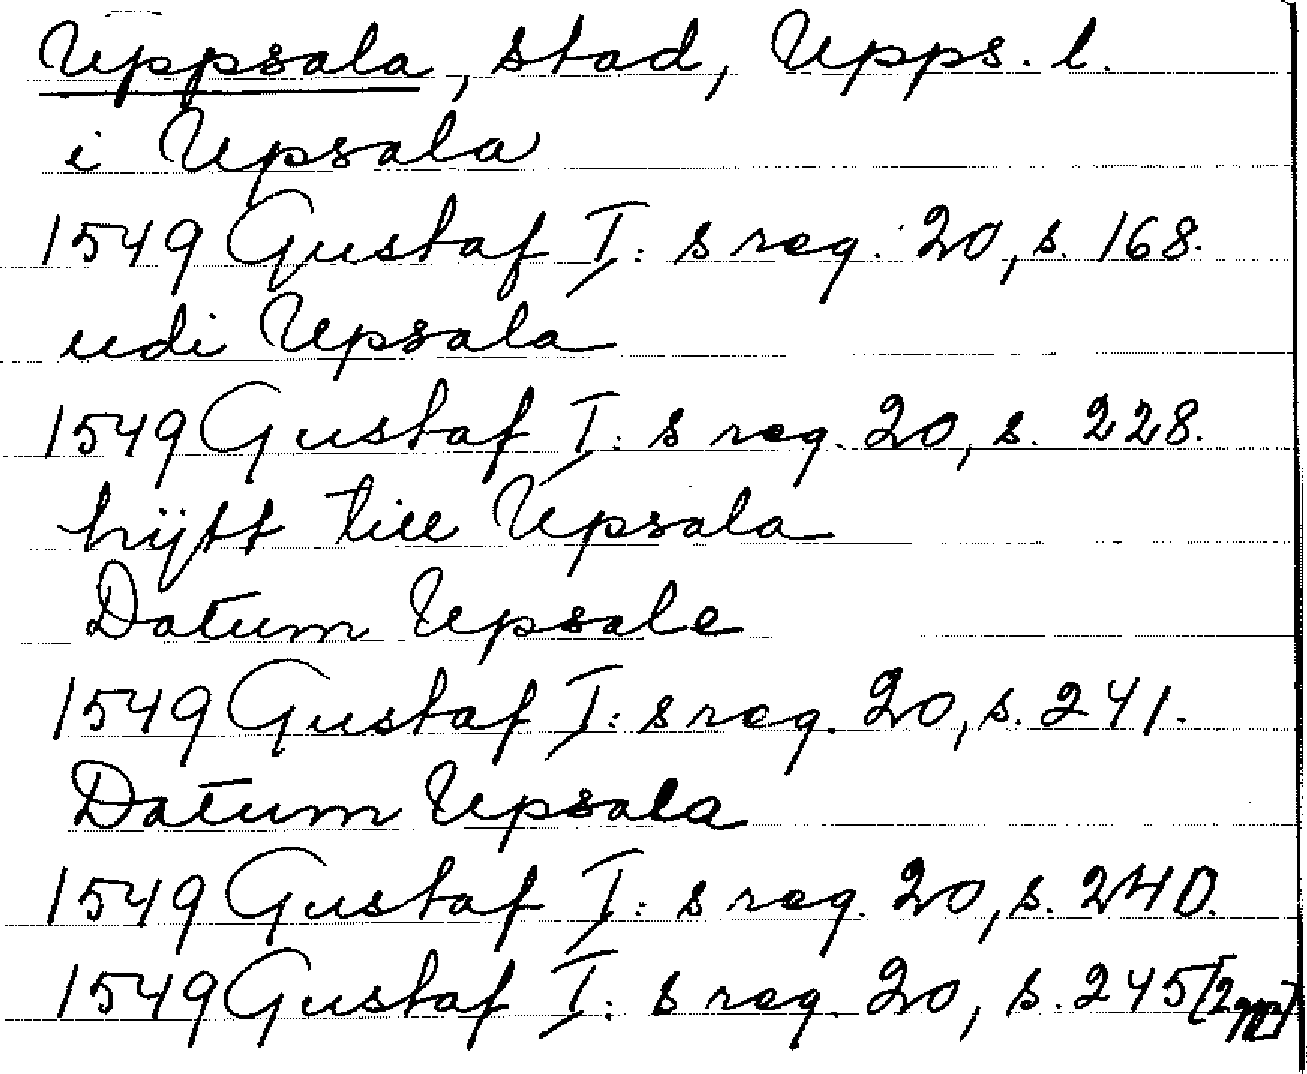 Uppsala, stad, Upps. l.
i Upsala
1549 Gustaf I: s reg. 20, s. 168.
udi Upsala
1549 Gustaf I: s reg. 20, s. 228.
hijtt till Upsala
Datum Upsale
1549 Gustaf I: s reg. 20, s. 241.
Datum Upsala
1549 Gustaf I: s reg. 20, s. 240.
1549 Gustaf I: s reg. 20, s. 245 [2